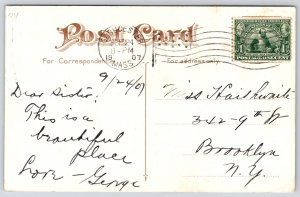 Post Card
For Correspondence
For address only.
8-PM
1907
MASS
9/24/07
Dear Sister:
This is a
beautiful
place
Love - George
Miss Haithwaite
342-9th St
Brooklyn
N.Y.
1 POSTAGE ONE CENT 1